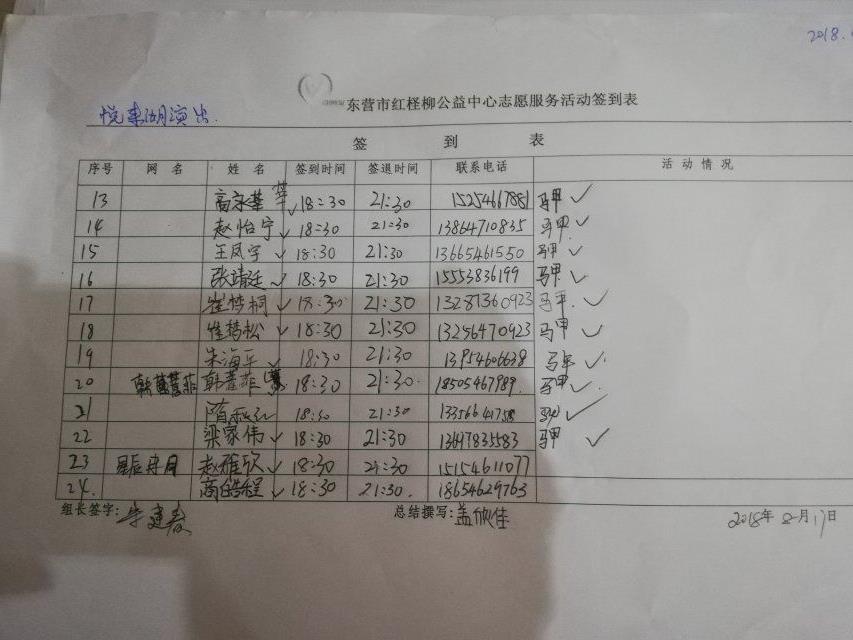 2018.
东营市红柽柳公益中心志愿服务活动签到表
悦来湖演出
签 到 表
序号 网 名 姓 名 签到时间 签退时间 联系电话 活动情况
13 18:30 21:30 15254667881 马甲 ✓
14 赵怡宁 ✓ 18:30 21:30 13864710835 马甲 ✓
15 王凤宇 ✓ 18:30 21:30 13665461550 马甲 ✓
16 张靖廷 ✓ 18:30 21:30 15553836199 马甲 ✓
17 崔梦桐 ✓ 18:30 21:30 13287360923 马甲 ✓
18 崔梦松 ✓ 18:30 21:30 13256470923 马甲 ✓
19 朱海平 ✓ 18:30 21:30 13954606638 马甲 ✓
20 18:30 21:30 18505467989 马甲 ✓
21 18:30 21:30 ✓
22 梁家伟 ✓ 18:30 21:30 马甲 ✓
23 赵雅欣 ✓ 18:30 21:30 15154611077
24. 商皓程 ✓ 18:30 21:30. 18654629763
组长签字: 牛建春 总结撰写: 盖欣佳 2018年 8月17日